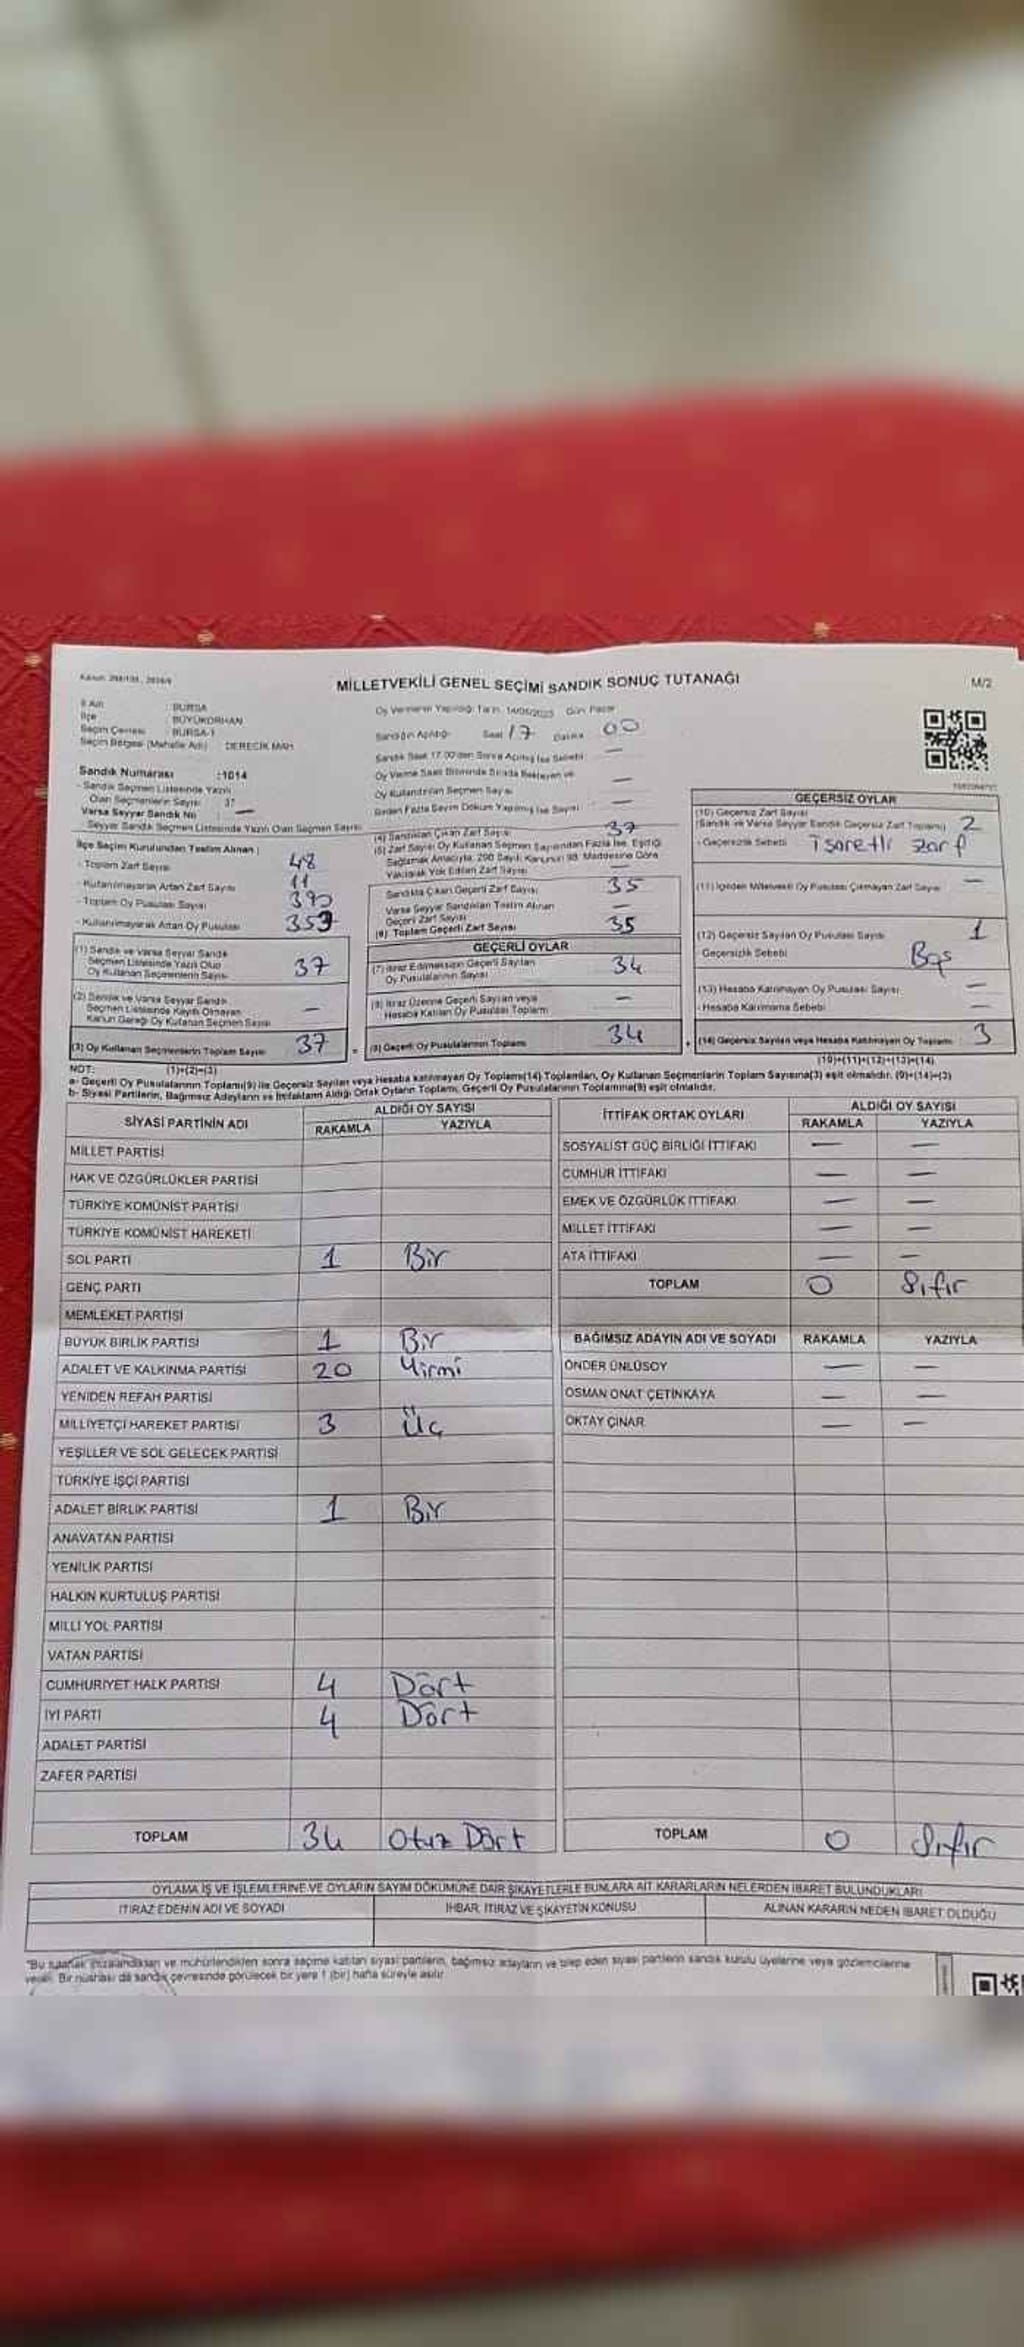 MİLLETVEKİLİ GENEL SEÇİMİ SANDIK SONUÇ TUTANAĞI
M/2
İl Adı : BURSA
İlçe : BÜYÜKORHAN
Seçim Çevresi : BURSA-1
Seçim Bölgesi (Mahalle Adı) : DERECİK MAH.
Sandık Numarası :1014
- Sandık Seçmen Listesinde Yazılı
Olan Seçmenlerin Sayısı 37
Varsa Seyyar Sandık No : —
Seyyar Sandık Seçmen Listesinde Yazılı Olan Seçmen Sayısı
İlçe Seçim Kurulundan Teslim Alınan :
- Toplam Zarf Sayısı 48
- Kullanılmayarak Artan Zarf Sayısı 11
- Toplam Oy Pusulası Sayısı 390
- Kullanılmayarak Artan Oy Pusulası 353
(1) Sandık ve Varsa Seyyar Sandık
Seçmen Listesinde Yazılı Olup
Oy Kullanan Seçmenlerin Sayısı 37
(2) Sandık ve Varsa Seyyar Sandık
Seçmen Listesinde Kayıtlı Olmayan
Kanun Gereği Oy Kullanan Seçmen Sayısı —
(3) Oy Kullanan Seçmenlerin Toplam Sayısı 37
Oy Vermenin Yapıldığı Tarih: 14/05/2023 Gün Pazar
Sandığın Açıldığı Saat 17 Dakika 00
Sandık Saat 17.00'den Sonra Açılmış İse Sebebi —
Oy Verme Saati Bitiminde Sırada Bekleyen ve
Oy Kullandırılan Seçmen Sayısı —
Birden Fazla Sayım Döküm Yapılmış İse Sayısı —
(4) Sandıktan Çıkan Zarf Sayısı 37
(5) Zarf Sayısı Oy Kullanan Seçmen Sayısından Fazla İse, Eşitliği
Sağlamak Amacıyla, 298 Sayılı Kanunun 98. Maddesine Göre
Yakılarak Yok Edilen Zarf Sayısı —
Sandıkta Çıkan Geçerli Zarf Sayısı 35
Varsa Seyyar Sandıktan Teslim Alınan
Geçerli Zarf Sayısı —
(6) Toplam Geçerli Zarf Sayısı 35
GEÇERLİ OYLAR
(7) İtiraz Edilmeksizin Geçerli Sayılan
Oy Pusulalarının Sayısı 34
(8) İtiraz Üzerine Geçerli Sayılan veya
Hesaba Katılan Oy Pusulası Toplamı —
(9) Geçerli Oy Pusulalarının Toplamı 34
GEÇERSİZ OYLAR
(10) Geçersiz Zarf Sayısı
(Sandık ve Varsa Seyyar Sandık Geçersiz Zarf Toplamı) 2
- Geçersizlik Sebebi İşaretli zarf
(11) İçinden Milletvekili Oy Pusulası Çıkmayan Zarf Sayısı —
(12) Geçersiz Sayılan Oy Pusulası Sayısı 1
Geçersizlik Sebebi Boş
(13) Hesaba Katılmayan Oy Pusulası Sayısı —
- Hesaba Katılmama Sebebi —
(14) Geçersiz Sayılan veya Hesaba Katılmayan Oy Toplamı 3
NOT: (1)+(2)=(3)
(10)+(11)+(12)+(13)=(14)
a- Geçerli Oy Pusulalarının Toplamı(9) ile Geçersiz Sayılan veya Hesaba katılmayan Oy Toplamı(14) Toplamları, Oy Kullanan Seçmenlerin Toplam Sayısına(3) eşit olmalıdır. (9)+(14)=(3)
b- Siyasi Partilerin, Bağımsız Adayların ve İttifakların Aldığı Ortak Oyların Toplamı, Geçerli Oy Pusulalarının Toplamına(9) eşit olmalıdır.
SİYASİ PARTİNİN ADI ALDIĞI OY SAYISI
RAKAMLA YAZIYLA
MİLLET PARTİSİ
HAK VE ÖZGÜRLÜKLER PARTİSİ
TÜRKİYE KOMÜNİST PARTİSİ
TÜRKİYE KOMÜNİST HAREKETİ
SOL PARTİ 1 Bir
GENÇ PARTİ
MEMLEKET PARTİSİ
BÜYÜK BİRLİK PARTİSİ 1 Bir
ADALET VE KALKINMA PARTİSİ 20 Yirmi
YENİDEN REFAH PARTİSİ
MİLLİYETÇİ HAREKET PARTİSİ 3 Üç
YEŞİLLER VE SOL GELECEK PARTİSİ
TÜRKİYE İŞÇİ PARTİSİ
ADALET BİRLİK PARTİSİ 1 Bir
ANAVATAN PARTİSİ
YENİLİK PARTİSİ
HALKIN KURTULUŞ PARTİSİ
MİLLİ YOL PARTİSİ
VATAN PARTİSİ
CUMHURİYET HALK PARTİSİ 4 Dört
İYİ PARTİ 4 Dört
ADALET PARTİSİ
ZAFER PARTİSİ
TOPLAM 34 Otuz Dört
İTTİFAK ORTAK OYLARI ALDIĞI OY SAYISI
RAKAMLA YAZIYLA
SOSYALİST GÜÇ BİRLİĞİ İTTİFAKI — —
CUMHUR İTTİFAKI — —
EMEK VE ÖZGÜRLÜK İTTİFAKI — —
MİLLET İTTİFAKI — —
ATA İTTİFAKI — —
TOPLAM 0 Sıfır
BAĞIMSIZ ADAYIN ADI VE SOYADI RAKAMLA YAZIYLA
ÖNDER ÜNLÜSOY — —
OSMAN ONAT ÇETİNKAYA — —
OKTAY ÇINAR — —
TOPLAM 0 Sıfır
OYLAMA İŞ VE İŞLEMLERİNE VE OYLARIN SAYIM DÖKÜMÜNE DAİR ŞİKAYETLERLE BUNLARA AİT KARARLARIN NELERDEN İBARET BULUNDUKLARI
İTİRAZ EDENİN ADI VE SOYADI İHBAR, İTİRAZ VE ŞİKAYETİN KONUSU ALINAN KARARIN NEDEN İBARET OLDUĞU
"Bu tutanak imzalandıktan ve mühürlendikten sonra seçime katılan siyasi partilerin, bağımsız adayların ve talep eden siyasi partilerin sandık kurulu üyelerine veya gözlemcilerine
verilir. Bir nüshası da sandık çevresinde görülecek bir yere 1 (bir) hafta süreyle asılır.